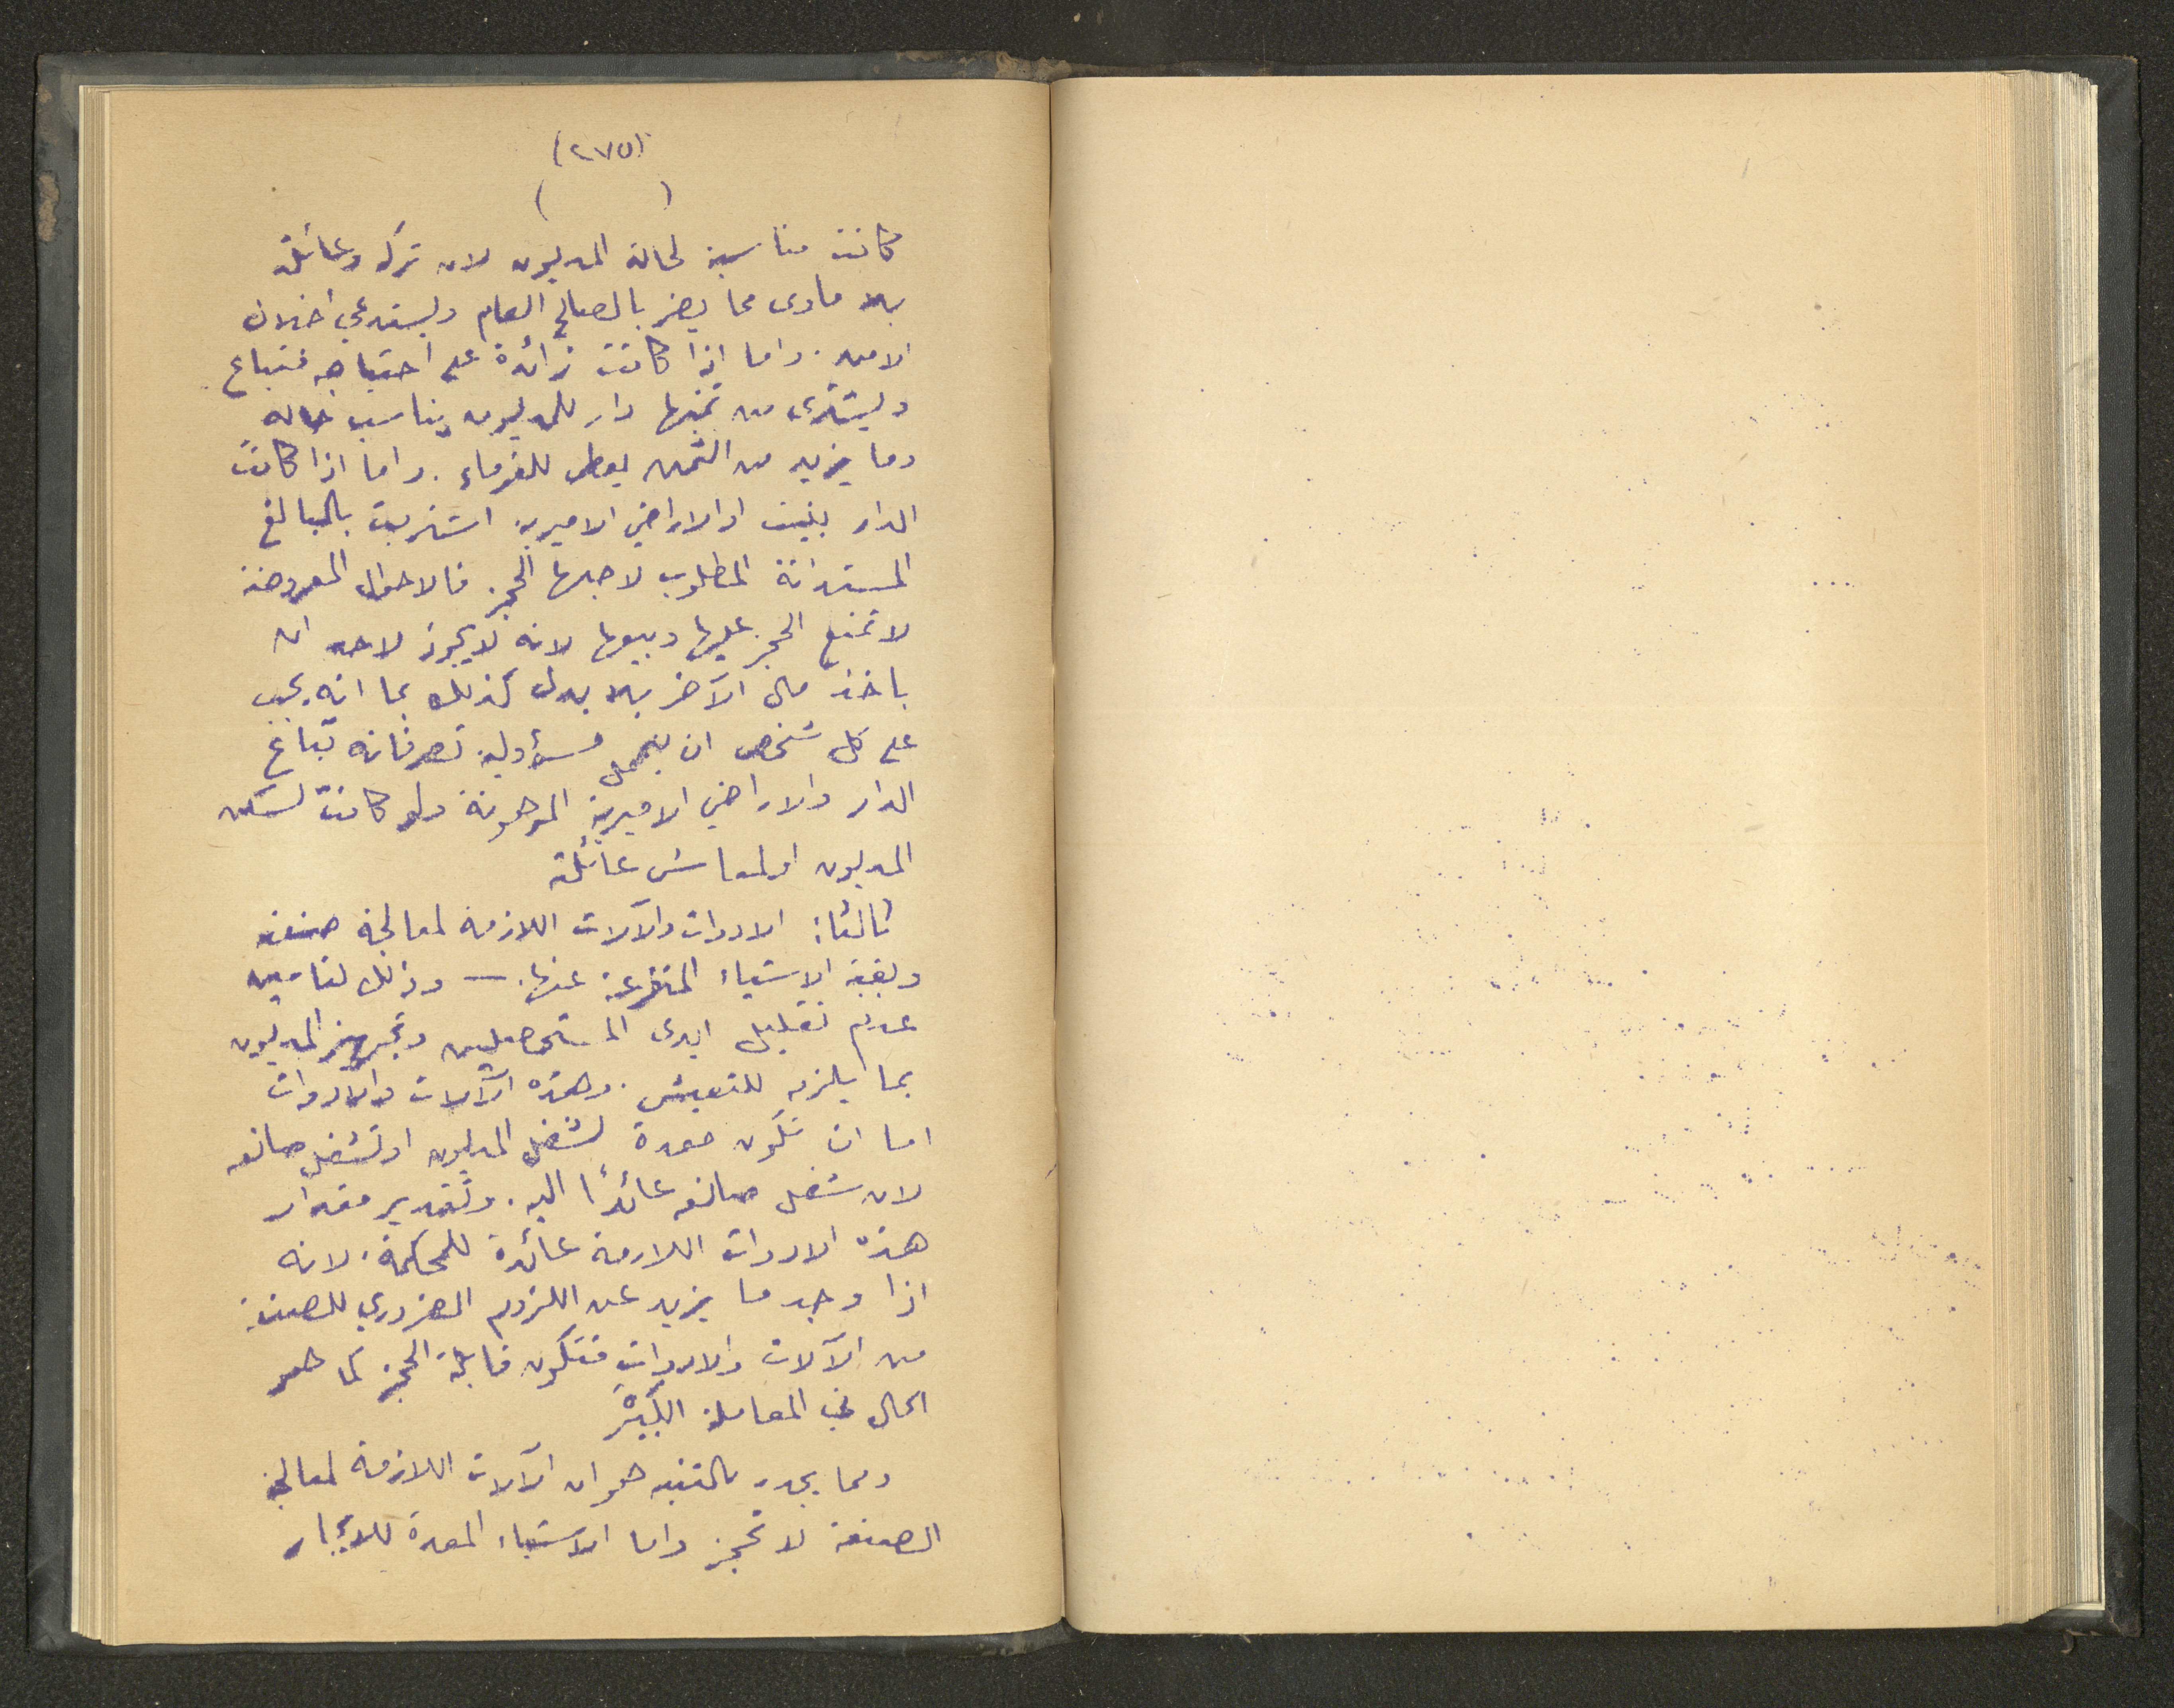 (٢٧٥)
(        )
كانت مناسبة لحالة المديون لان تركه وعائلته
بلا مأوى مما يضر بالصالح العام ويستدعي اخلال
الامن. واما اذا كانت زائدة على احتياجه فتباع
ويشترى من ثمنها دار للمديون يناسب حاله
وما يزيد من الثمن يعطى للغرماء. واما اذا كانت
الدار بنيت او الاراضي الاميرية اشتريت بالمبالغ
المستدانة المطلوب لاجلها الحجز فالاحوال المعروضة
لا تمنع الحجز عليها وبيعها لانه لا يجوز لاحد ان
ياخذ مال الآخر بلا بدل كذلك بما انه يجب
على كل شخص ان يتحمل مسؤولية تصرفاته تباع
الدار والاراضي الاميرية المرهونة ولو كانت لسكن
المديون او لمعاش عائلته
ثالثا: الادوات والآلات اللازمة لمعالجة صنعته
وبقية الاشياء المتفرعة عنها. — وذلك لتامين
عدم تقليل ايدى المستحصلين وتجهيز المديون
بما يلزم للتعيش. وهذه الآلات والادوات
اما ان تكون معدة لشغل المديون او لشغل صانعه
لان شغل صانعه عائدًا اليه. وتقدير مقدار
هذه الادوات اللازمة عائدة للمحكمة. لانه
اذا وجد ما يزيد عن اللزوم الضروري للصنعة
من الآلات والادوات فتكون قابلة الحجز كما هو
الحال في المعاملة الكبيرة
ومما يجدر بالتنبه هو ان الآلات اللازمة لمعالجة
الصنعة لا تحجز واما الاشياء المعدة للايجار